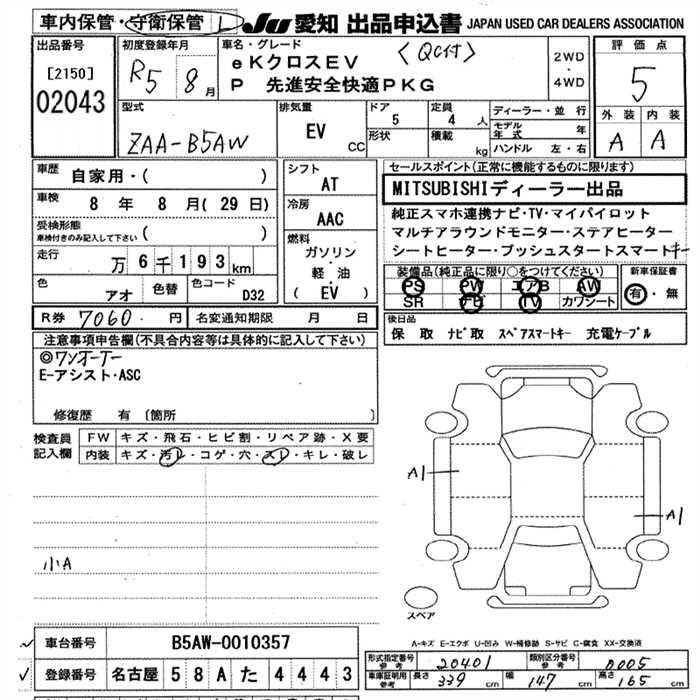 車内保管・守衛保管 L JU 愛知 出品申込書 JAPAN USED CAR DEALERS ASSOCIATION
出品番号
[2150]
02043
初度登録年月
R5 8月
車名・グレード
〈QC付〉
eKクロスEV
P 先進安全快適PKG
2WD
・
4WD
評価点
5
外装 内装
A A
型式
ZAA-B5AW
排気量
EV
CC
ドア
5
定員
4 人
形状
積載
kg
ディーラー・並行
モデル年式 年
ハンドル 左・右
車歴
自家用・( )
車検
8 年 8 月(29 日)
受検形態
車検付きのみ記入して下さい
( )
走行
万 6 千 1 9 3 km
色
アオ
色替
色コード
D32
シフト
AT
冷房
AAC
燃料
ガソリン
・
軽・油
( EV )
セールスポイント(正常に機能するものに限ります)
MITSUBISHIディーラー出品
純正スマホ連携ナビ・TV・マイパイロット
マルチアラウンドモニター・ステアヒーター
シートヒーター・プッシュスタートスマートキー
装備品(純正品に限り○をつけてください)
PS PW エアB AW
SR ナビ TV カワシート
新車保証書
有・無
R券 7060 . 円 名変通知期限 月 日
後日品
保 取 ナビ取 スペアスマートキー 充電ケーブル
注意事項申告欄(不具合内容等は具体的に記入して下さい)
◎ワンオーナー
E-アシスト・ASC
修復歴 有 〔箇所 〕
検査員
記入欄
FW キズ・飛石・ヒビ割・リペア跡・X要
内装 キズ・汚レ・コゲ・穴・スレ・キレ・破レ
小A
A1
A1
スペア
A-キズ E-エクボ U-凹み W-補修跡 S-サビ C-腐食 XX-交換済
車台番号 B5AW-0010357
登録番号 名古屋 5 8 A た 4 4 4 3
形式指定番号
参考
20401
類別区分番号
参考
0005
車庫証明用
参考
長さ 339 cm 幅 147 cm 高さ 165 cm